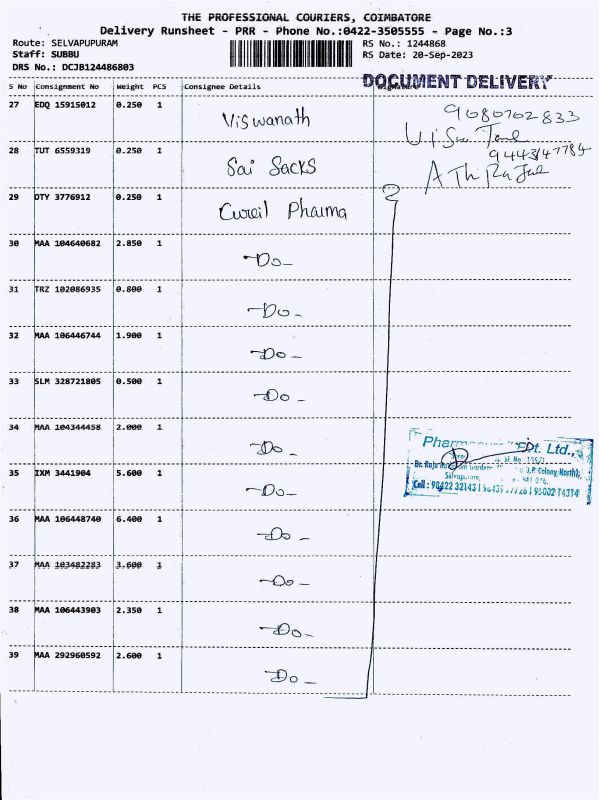 THE PROFESSIONAL COURIERS, COIMBATORE
Delivery Runsheet - PRR - Phone No.:0422-3505555 - Page No.:3
Route: SELVAPUPURAM
RS No.: 1244868
Staff: SUBBU
RS Date: 20-Sep-2023
DRS No.: DCJB124486803
DOCUMENT DELIVERY
S No Consignment No Weight PCS Consignee Details
27 EDQ 15915012 0.250 1 Viswanath 9080702833
28 TUT 6559319 0.250 1 Sai Sacks
29 DTY 3776912 0.250 1 Cureil Pharma
30 MAA 104640682 2.850 1 -Do-
31 TRZ 102086935 0.800 1 -Do-
32 MAA 106446744 1.900 1 -Do-
33 SLM 328721805 0.500 1 -Do-
34 MAA 104344458 2.000 1 -Do-
35 IXM 3441904 5.600 1 -Do-
36 MAA 106448740 6.400 1 -Do-
37 MAA 103482283 3.600 1 -Do-
38 MAA 106443903 2.350 1 -Do-
39 MAA 292960592 2.600 1 -Do-
Pvt. Ltd.,
Selvapuram,
Cell : 98422 32143 | 95002 14314